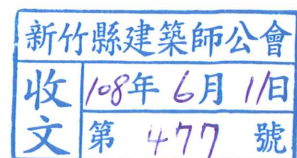 新竹縣建築師公會
收文
108年6月11日
第477號